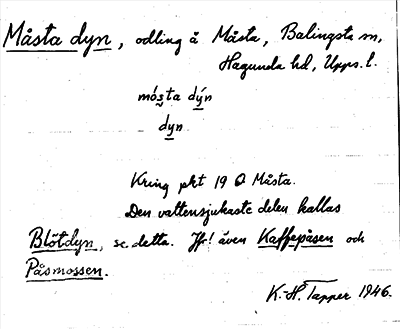 Måsta dyn, odling å Måsta, Balingsta sn,
Hagunda hd, Upps. l.
mós̰ta dýn
dyn
Kring pkt 19 Q Måsta.
Den vattensjukaste delen kallas
Blötdyn, se detta. Jfr! även Kaffepåsen och
Påsmossen.
K.-H. Tapper 1946.